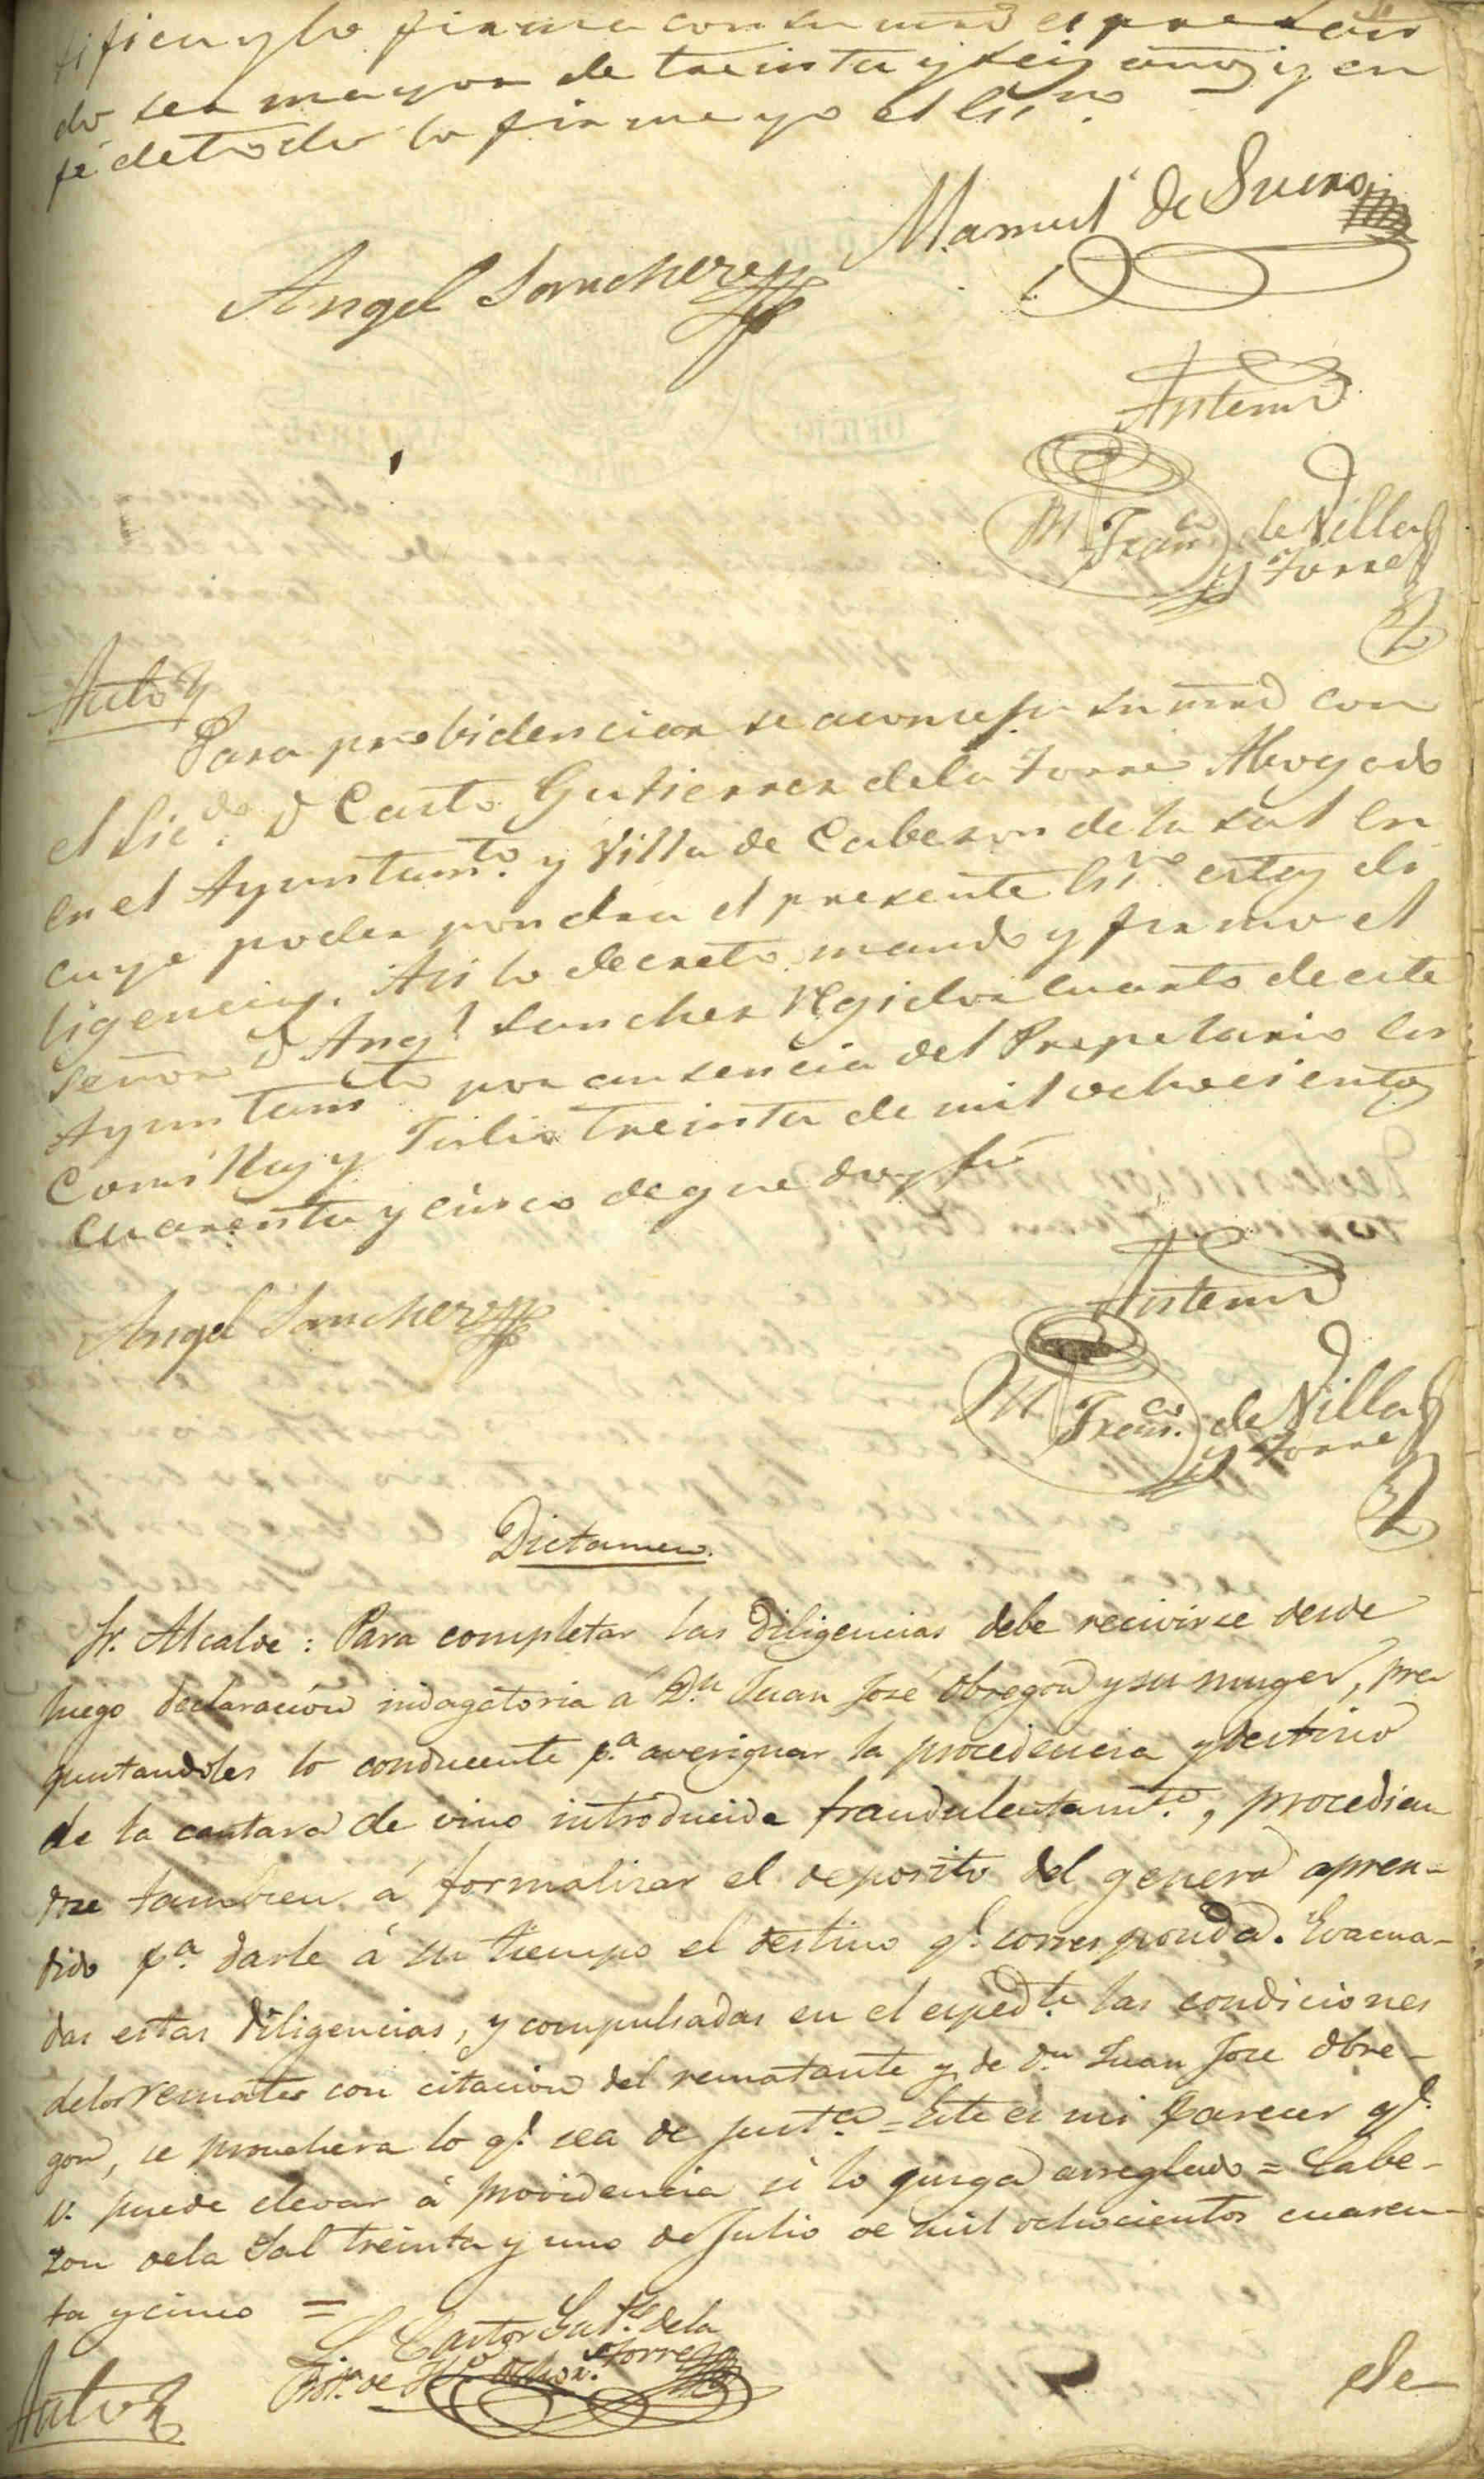 tifica y lo firma con su mrd espresan
do ser mayor de treinta y seis años y en
fé de todo lo firme yo el Es.no
Manuel de Sucro
Angel Sanchez
Antemi
M Fran.co de Villa
y Torre
Auto
Para probidenciar se aconseja su mrd con
el Lic.do D Casto Gutierrez dela Torre Abogado
en el Ayuntam.to y Villa de Cabezon de la Sal en
cuyo poder pondra el presente Es.no estas di
ligencias. Asi lo decreto mando y firmo el
Señor D Ang.l Sanchez Regidor cuarto de este
Ayuntam.to por ausencia del Propetario en
Comillas y Julio treinta de mil ochocientos
cuarenta y cinco de que doy fé
Angel Sanchez
Antemi
M Fran.co de Villa
y Torre
Dictamen.
Sr. Alcalde: Para completar las diligencias debe recivirse desde
luego declaracion indagatoria á D.n Juan José Obregon y su muger, pre
guntandoles lo conducente p.a averiguar la procedencia y destino
de la cantara de vino introducida fraudulentam.te, procedien
dose tambien á formalizar el deposito del genero apren-
dido p.a darle á su tiempo el destino q.e corresponda. Evacua-
das estas diligencias, y compulsadas en el exped.te las condiciones
delos remates con citacion del rematante y de D.n Juan Jose Obre-
gon, se provehera lo q.e sea de just.a = Este es mi parecer q.e
V. puede elevar á providencia si lo juzga arreglado = Cabe-
zon dela Sal treinta y uno de Julio de mil ochocientos cuaren-
ta y cinco =
L. Castor Gut.z dela
Torre
Auto
de